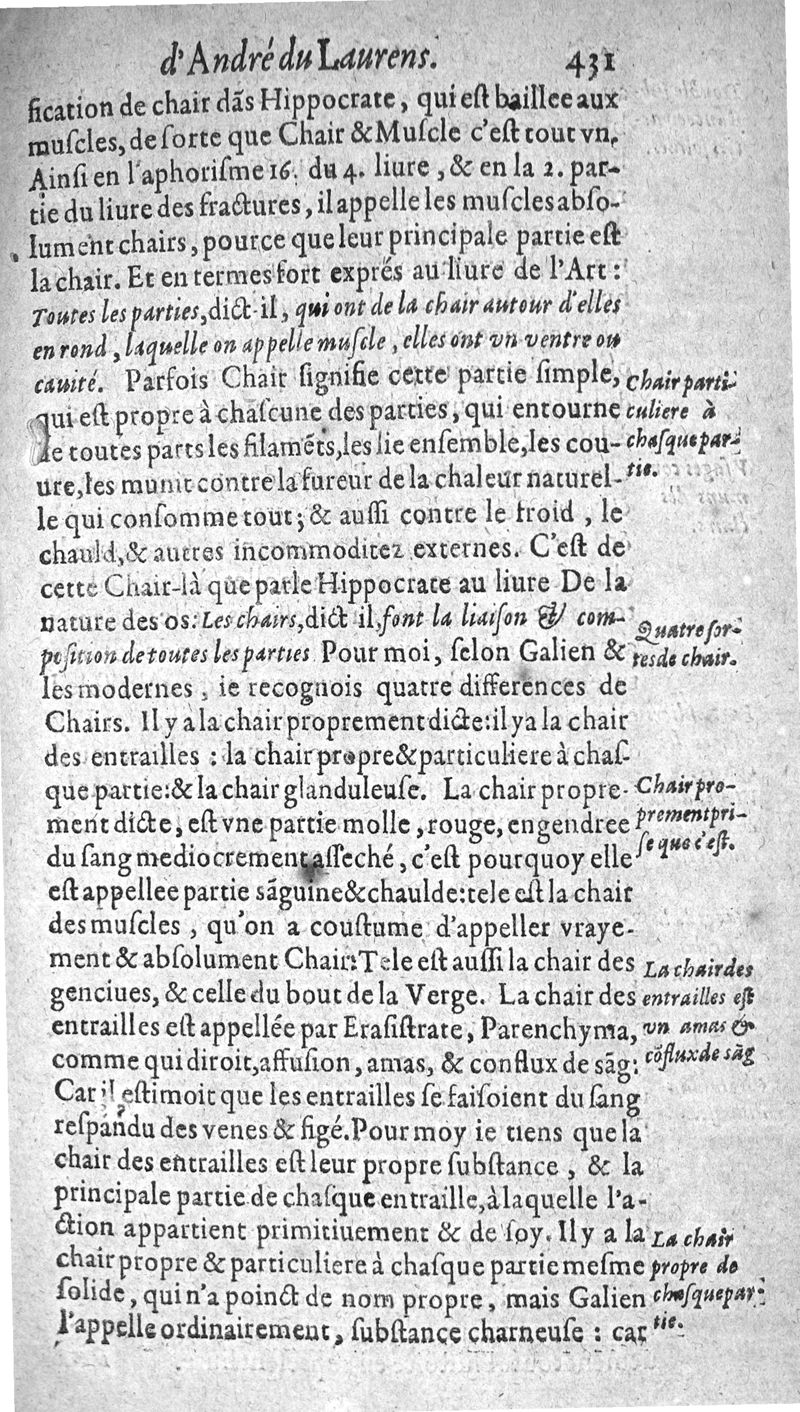 d'André du Laurens. 431
fication de chair dãs Hippocrate, qui est baillee aux
muscles, de sorte que Chair & Muscle c'est tout vn.
Ainsi en l'aphorisme 16. du 4. liure, & en la 2. par-
tie du liure des fractures, il appelle les muscles abso-
lument chairs, pource que leur principale partie est
la chair. Et en termes fort exprés au liure de l'Art:
Toutes les parties, dict il, qui ont de la chair autour d'elles
en rond, laquelle on appelle muscle, elles ont vn ventre ou
cauité. Parfois Chair signifie cette partie simple,
qui est propre à chascune des parties, qui entourne
de toutes parts les filamẽts, les lie ensemble, les cou-
ure, les munit contre la fureur de la chaleur naturel-
le qui consomme tout; & aussi contre le froid, le
chauld, & autres incommoditez externes. C'est de
cette Chair-là que parle Hippocrate au liure De la
nature des os: Les chairs, dict il, font la liaison & com-
position de toutes les parties Pour moi, selon Galien &
les modernes, ie recognois quatre differences de
Chairs. Il y a la chair proprement dicte: il y a la chair
des entrailles : la chair propre & particuliere à chas-
que partie: & la chair glanduleuse. La chair propre-
ment dicte, est vne partie molle, rouge, engendree
du sang mediocrement asseché, c'est pourquoy elle
est appellee partie sãguine & chaulde: tele est la chair
des muscles, qu'on a coustume d'appeller vraye-
ment & absolument Chair: Tele est aussi la chair des
genciues, & celle du bout de la Verge. La chair des
entrailles est appellée par Erasistrate, Parenchyma,
comme qui diroit, affusion, amas, & conflux de sãg:
Car il estimoit que les entrailles se faisoient du sang
respandu des venes & figé. Pour moy ie tiens que la
chair des entrailles est leur propre substance, & la
principale partie de chasque entraille, à laquelle l'a-
ction appartient primitiuement & de soy. Il y a la
chair propre & particuliere à chasque partie mesme
solide, qui n'a poinct de nom propre, mais Galien
l'appelle ordinairement, substance charneuse : car
Chair parti-
culiere à
chasque par-
tie.
Quatre sor-
tes de chair.
Chair pro-
prement pri-
se que c'est.
La chair des
entrailles est
vn amas &
cõflux de sãg
La chair
propre de
chasque par-
tie.